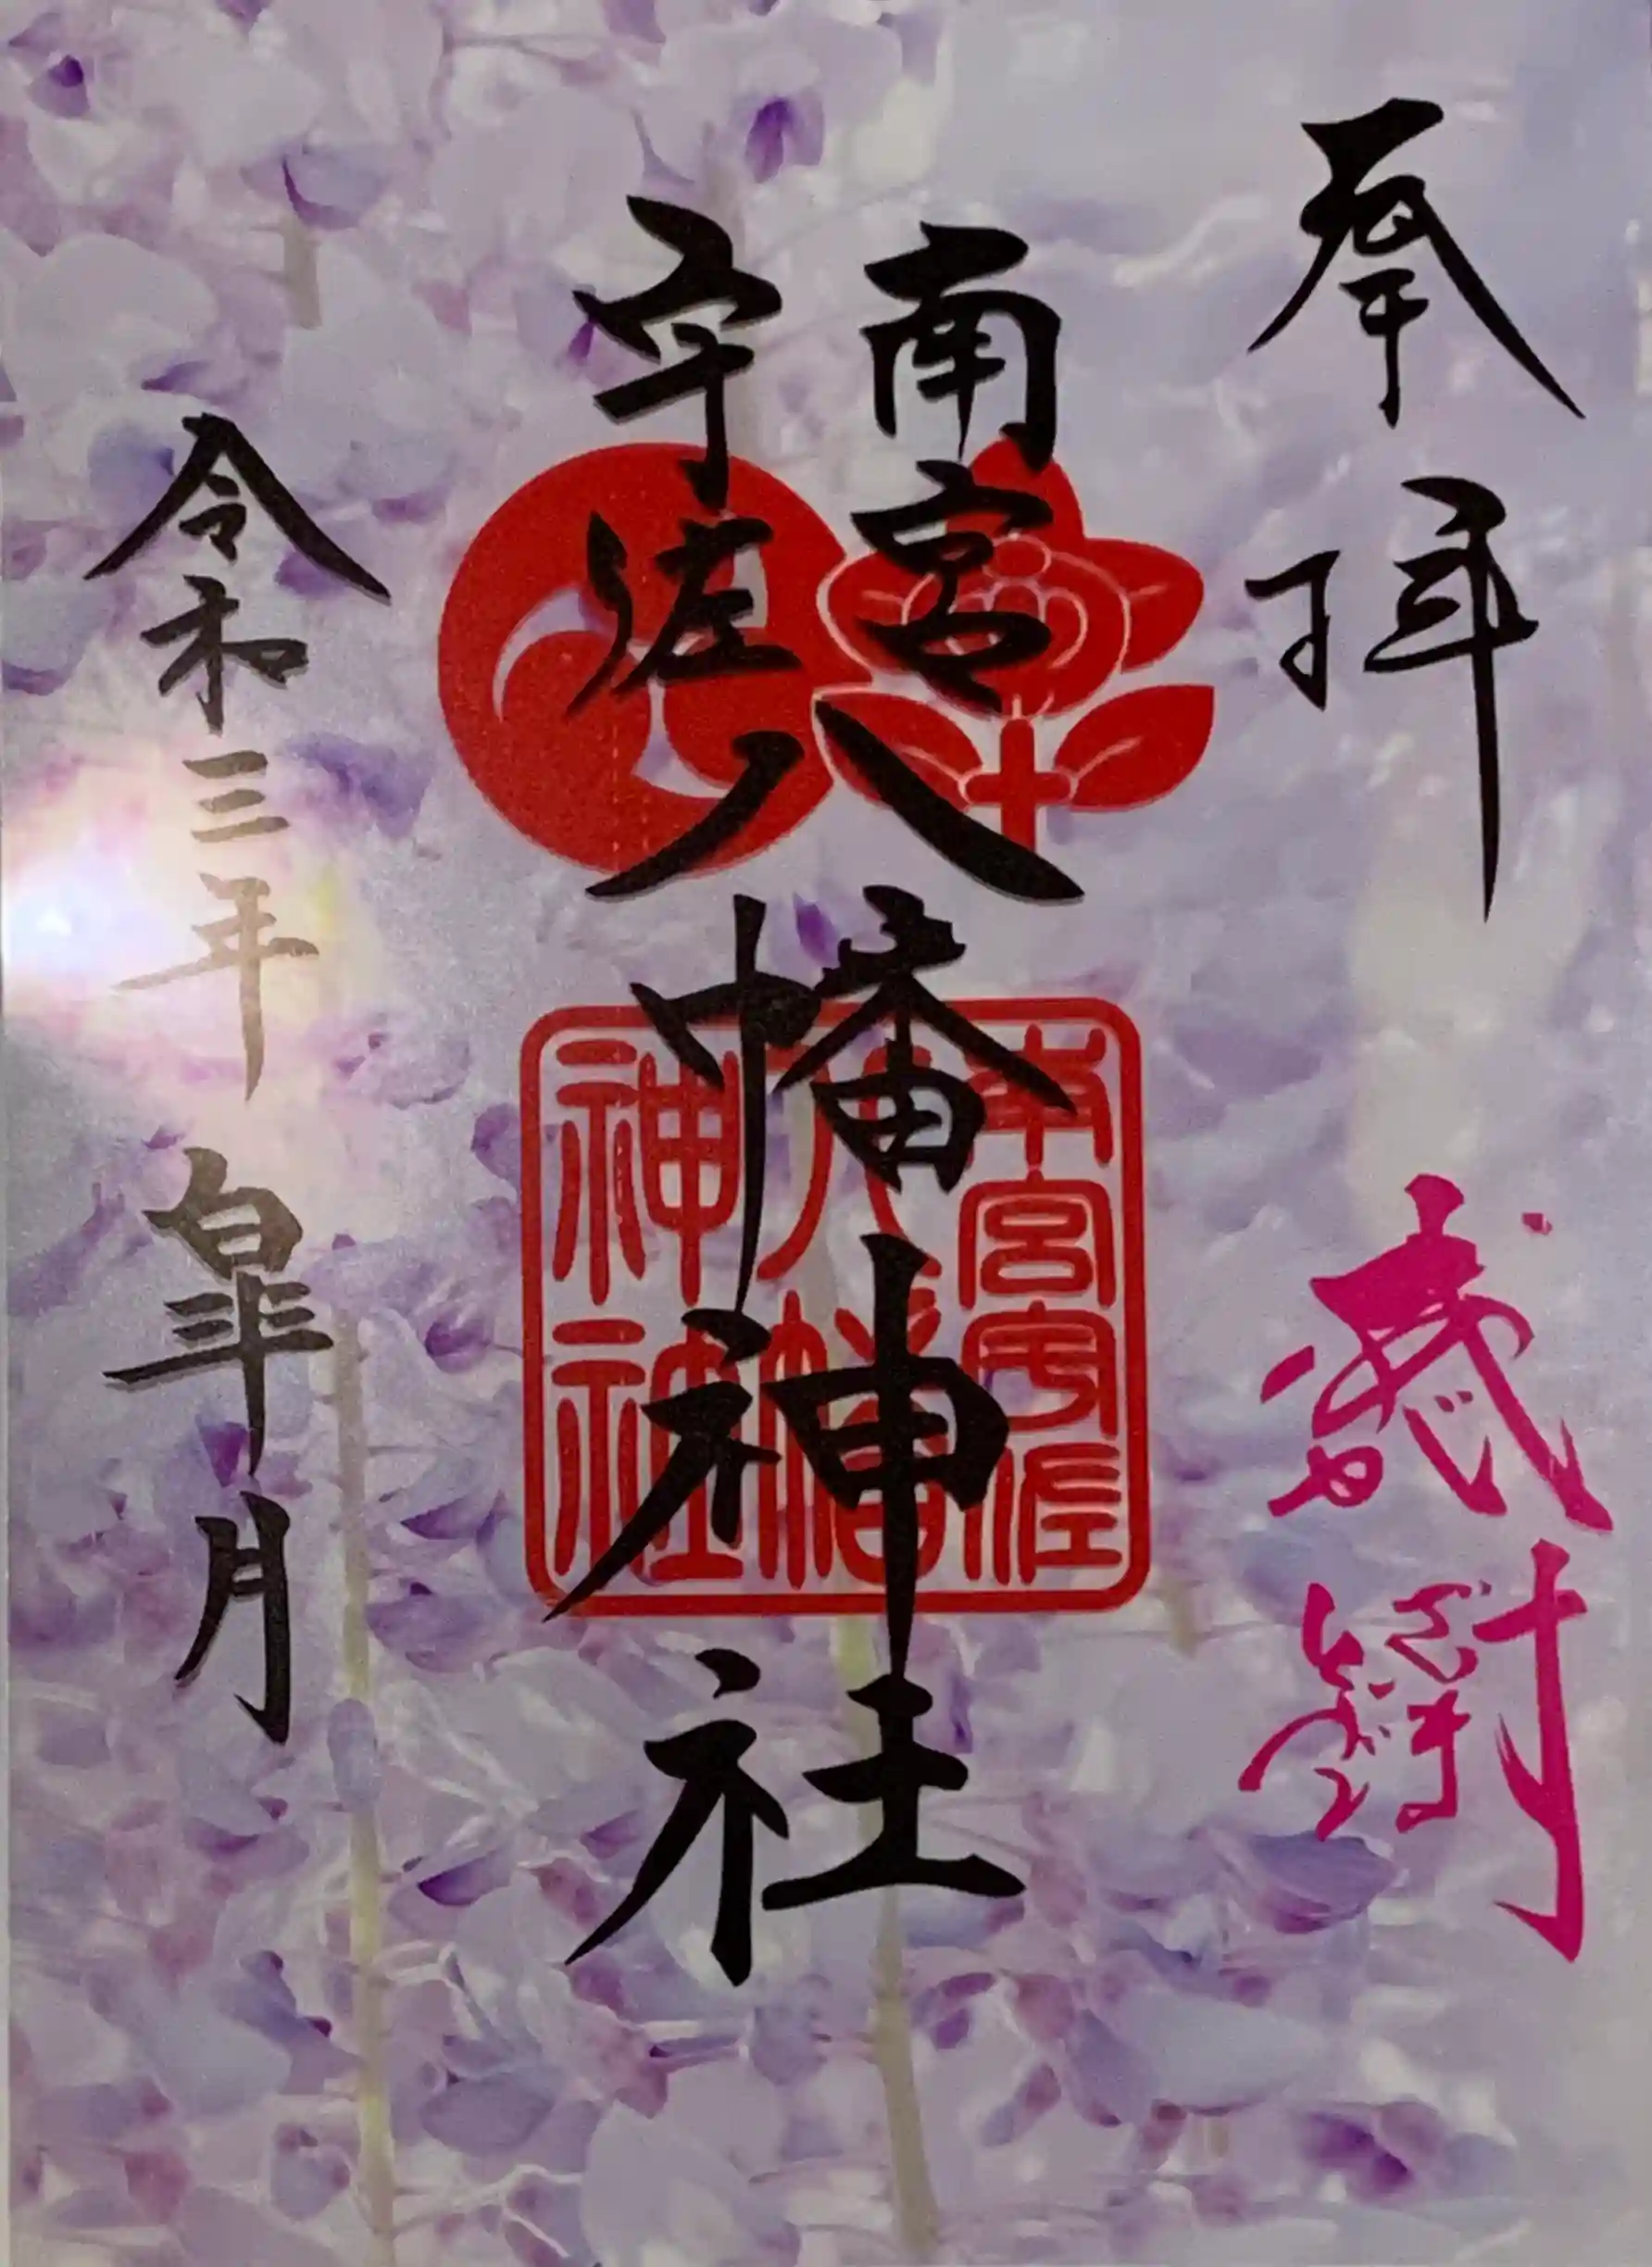 奉拝
南宮
宇佐
八幡神社
南宮宇佐
八幡
神社
令和三年 皐月